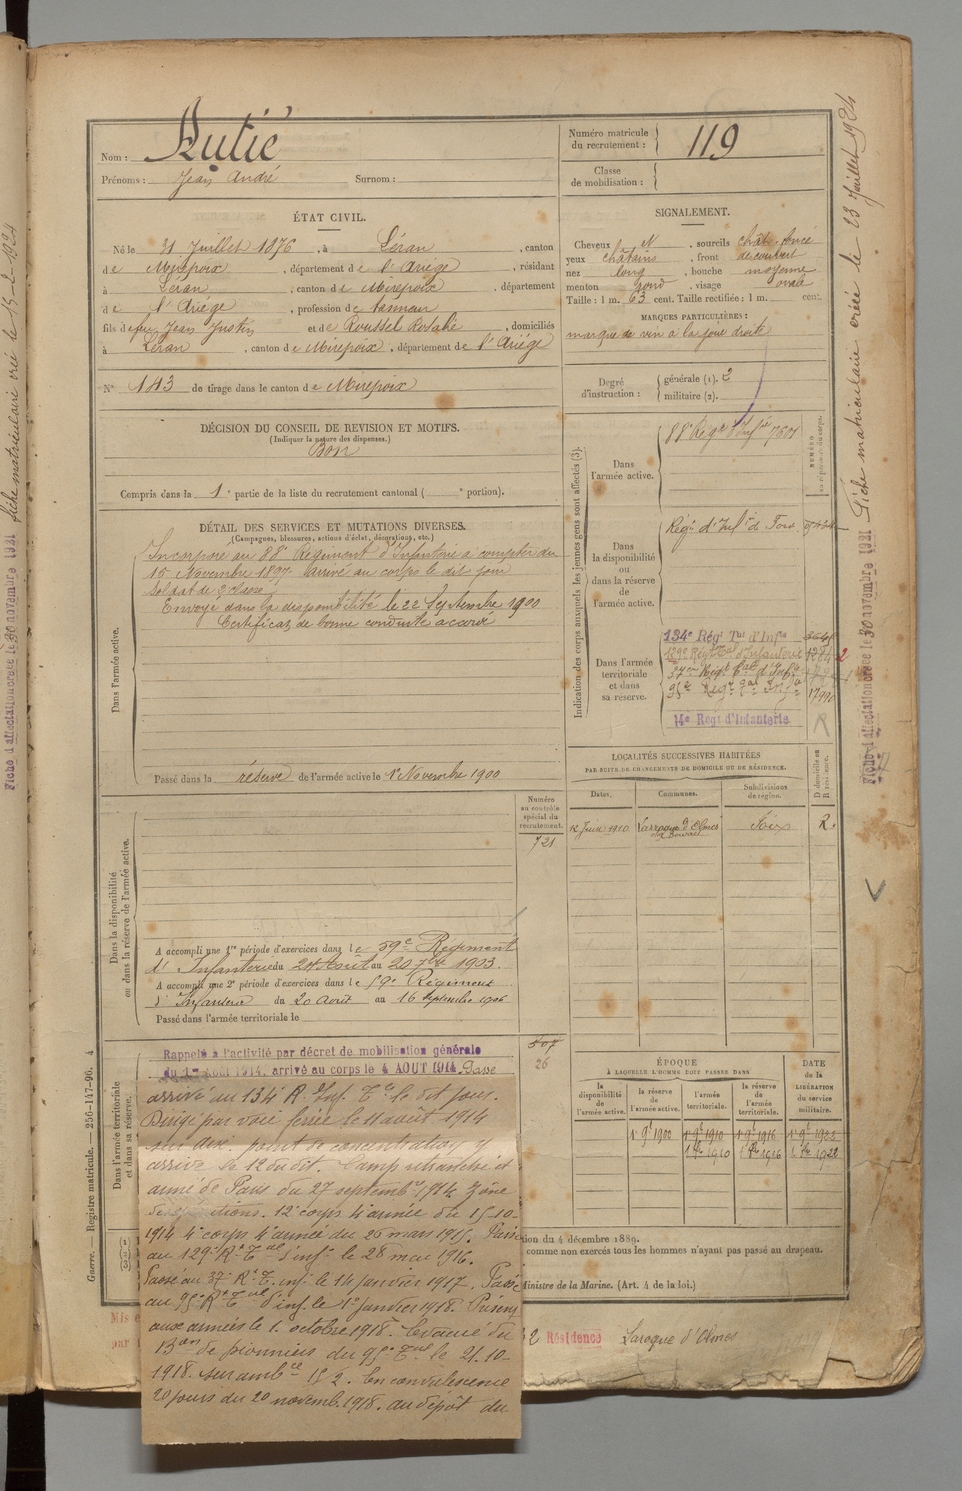 Nom : Autié
Prénoms : Jean André Surnom :
Numéro matricule du recrutement : 119
Classe de mobilisation :
ÉTAT CIVIL.
Né le 31 Juillet 1876, à Léran, canton
de Mirepoix, département de l'Ariége, résidant
à Léran, canton de Mirepoix, département
de l'Ariége, profession de tanneur
fils de feu Jean Justin et de Roussel Rosalie, domiciliés
à Léran, canton de Mirepoix, département de l'Ariége
N° 143 de tirage dans le canton de Mirepoix
SIGNALEMENT.
Cheveux N, sourcils chât. foncé
yeux châtains, front découvert
nez long, bouche moyenne
menton rond, visage ovale
Taille : 1 m. 63 cent. Taille rectifiée : 1 m. cent.
MARQUES PARTICULIÈRES :
marque de vin à la joue droite
Degré d'instruction : générale (1). 2
militaire (2).
DÉCISION DU CONSEIL DE REVISION ET MOTIFS.
(Indiquer la nature des dispenses.)
Bon
Compris dans la 1e partie de la liste du recrutement cantonal ( e portion).
DÉTAIL DES SERVICES ET MUTATIONS DIVERSES.
(Campagnes, blessures, actions d'éclat, décorations, etc.)
Dans l'armée active.
Incorporé au 88e Régiment d'Infanterie à compter du
15 Novembre 1897. Arrivé au corps le dit jour
Soldat de 2e classe
Envoyé dans la disponibilité le 22 Septembre 1900
Certificat de bonne conduite accordé
Passé dans la réserve de l'armée active le 1er Novembre 1900
Indication des corps auxquels les jeunes gens sont affectés (3).
NUMÉRO
Dans l'armée active.
88e Régt d'Infie
Dans la disponibilité ou dans la réserve de l'armée active.
Régt d'Infie de Foix
Dans l'armée territoriale et dans sa réserve.
134e Régt Tal d'Infie
129e Régt Tal d'Infanterie
37e Régt Tal d'Infie
95e Régt Tal Infie
14e Régt d'Infanterie
R
LOCALITÉS SUCCESSIVES HABITÉES
PAR SUITE DE CHANGEMENTS DE DOMICILE OU DE RÉSIDENCE.
Dates.
Communes.
Subdivisions de région.
D domicile ou R résidence.
12 Juin 1910 Laroque d'Olmes Foix R.
Numéro au contrôle spécial du recrutement.
721
Dans la disponibilité ou dans la réserve de l'armée active.
A accompli une 1re période d'exercices dans le 59e Régiment
d'Infanterie du 24 Août au 20 7bre 1903.
A accompli une 2e période d'exercices dans le 59e Régiment
d'Infanterie du 20 Août au 16 Septembre 1906
Passé dans l'armée territoriale le
507
26
Dans l'armée territoriale et dans sa réserve.
Rappelé à l'activité par décret de mobilisation générale
du 1er Août 1914, arrivé au corps le 4 AOUT 1914. Passé
arrivé au 134e R. Inf. Te le dit jour.
Dirigé par voie ferrée le 11 août 1914
sur point de concentration y
arrivé le 12 dudit. Camp retranché et
armé de Paris du 27 septembre 1914. Zône
des opérations. 12e corps 4e armée du 15-10-
1914 4e corps 4e armée du 20 mars 1915. Passé
au 129e Rt Tal d'inf. le 28 mai 1916.
Passé au 37e Rt T. inf. le 14 janvier 1917. Passé
au 95e Rt Tal d'inf. le 1er janvier 1918. Présent
aux armées le 1. octobre 1918. Evacué du
Bon de pionniers du 95e Tal le 21-10-
1918. sur ambce 15/2. En convalescence
20 jours du 20 novemb. 1918. au dépôt du
ÉPOQUE
À LAQUELLE L'HOMME DOIT PASSER DANS
la disponibilité de l'armée active.
la réserve de l'armée active.
l'armée territoriale.
la réserve de l'armée territoriale.
DATE de la LIBÉRATION du service militaire.
1er 9e 1900 1er 9e 1910 1er 9e 1916 1er 9e 1922
1er 8e 1910 1er 8e 1916 1er 8e 1922
(1)
(2)
(3)
tion du 4 décembre 1889.
comme non exercés tous les hommes n'ayant pas passé au drapeau.
Ministre de la Marine. (Art. 4 de la loi.)
Mis e
par
2 Résidence Laroque d'Olmes
Guerre. — Registre matricule. — 256-147-96.
Fiche matriculaire créée le 23 Juillet 1924
Fiche d'affectation créée le 30 novembre 1931
fiche matriculaire créé le
Fiche d'affectation créée le 30 novembre 1931